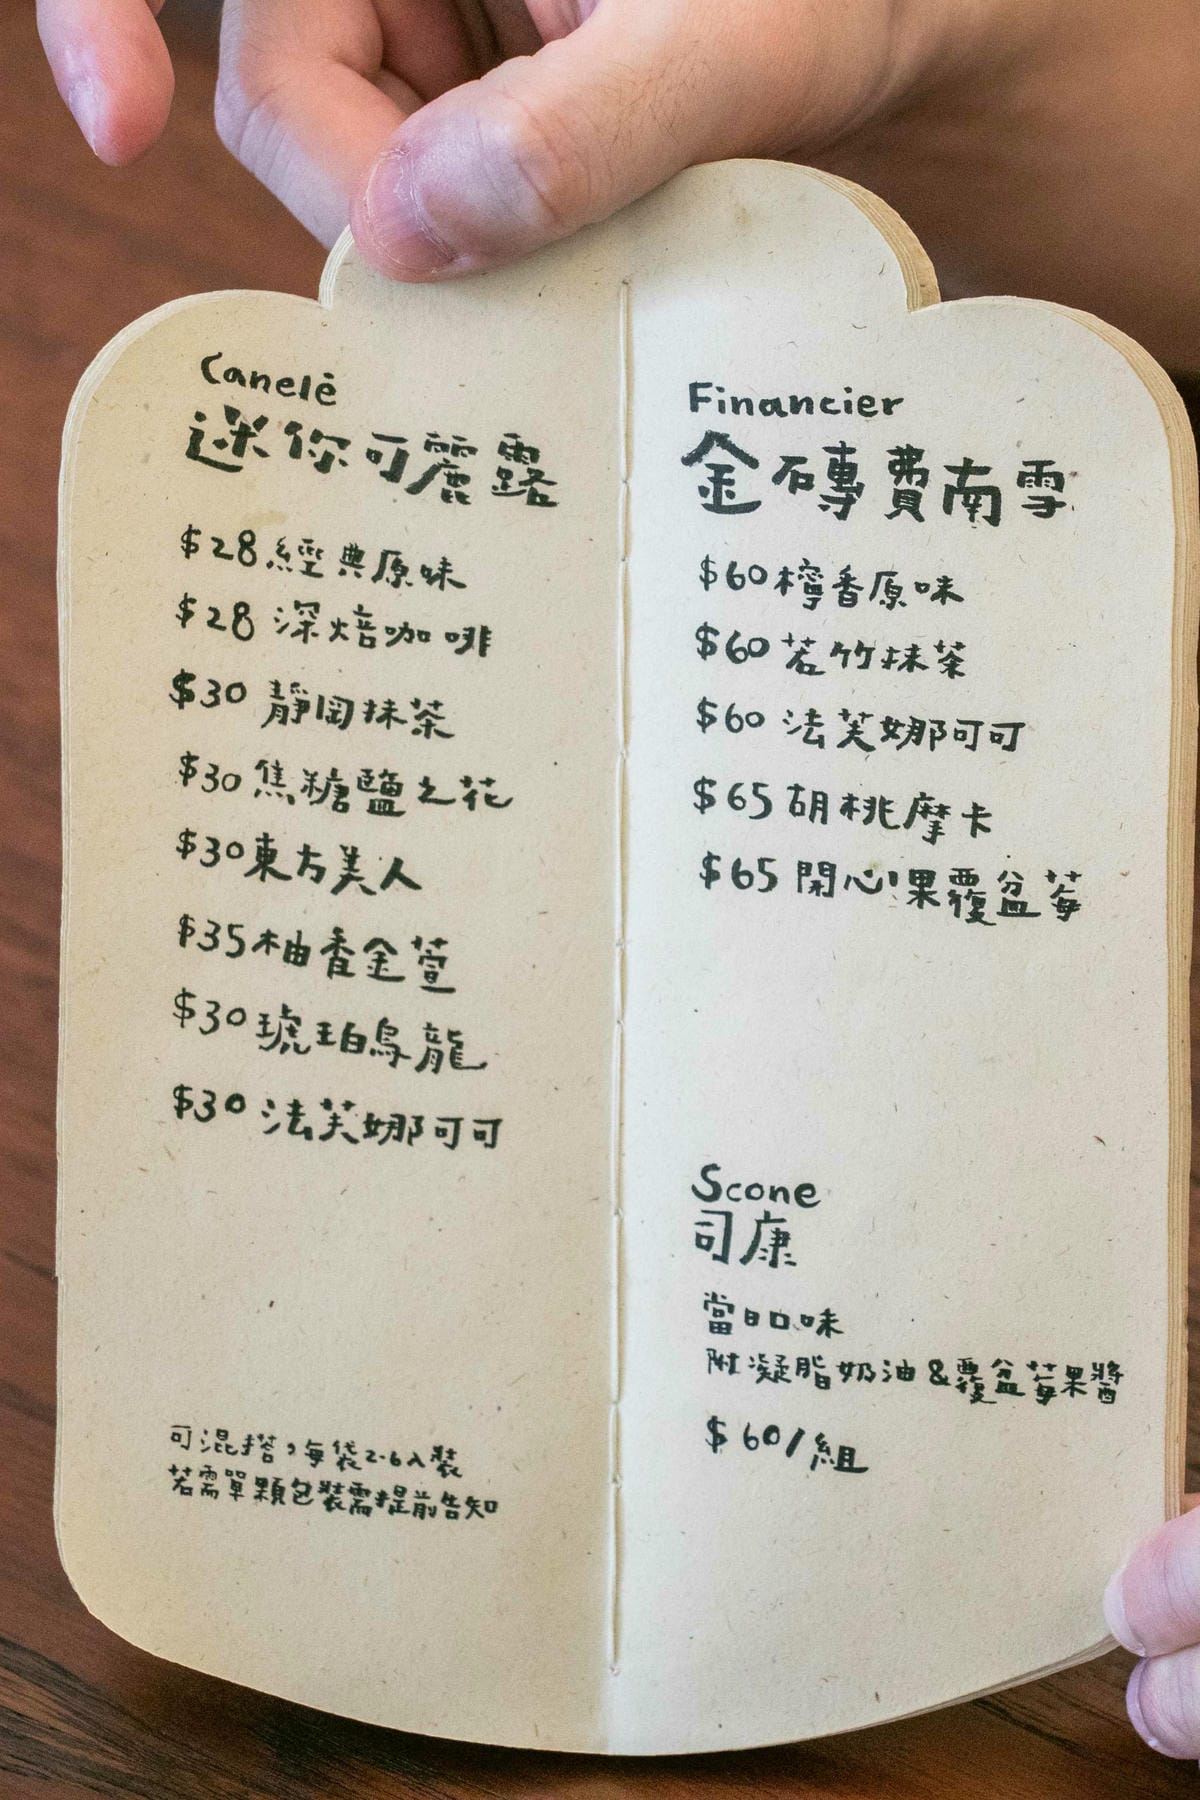 Canelé
迷你可麗露
$28 經典原味
$28 深焙咖啡
$30 靜岡抹茶
$30 焦糖鹽之花
$30 東方美人
$35 柚香金萱
$30 琥珀烏龍
$30 法芙娜可可
可混搭，每袋2-6入裝
若需單顆包裝需提前告知
Financier
金磚費南雪
$60 檸香原味
$60 若竹抹茶
$60 法芙娜可可
$65 胡桃摩卡
$65 開心果覆盆莓
Scone
司康
當日口味
附凝脂奶油&覆盆莓果醬
$60/組